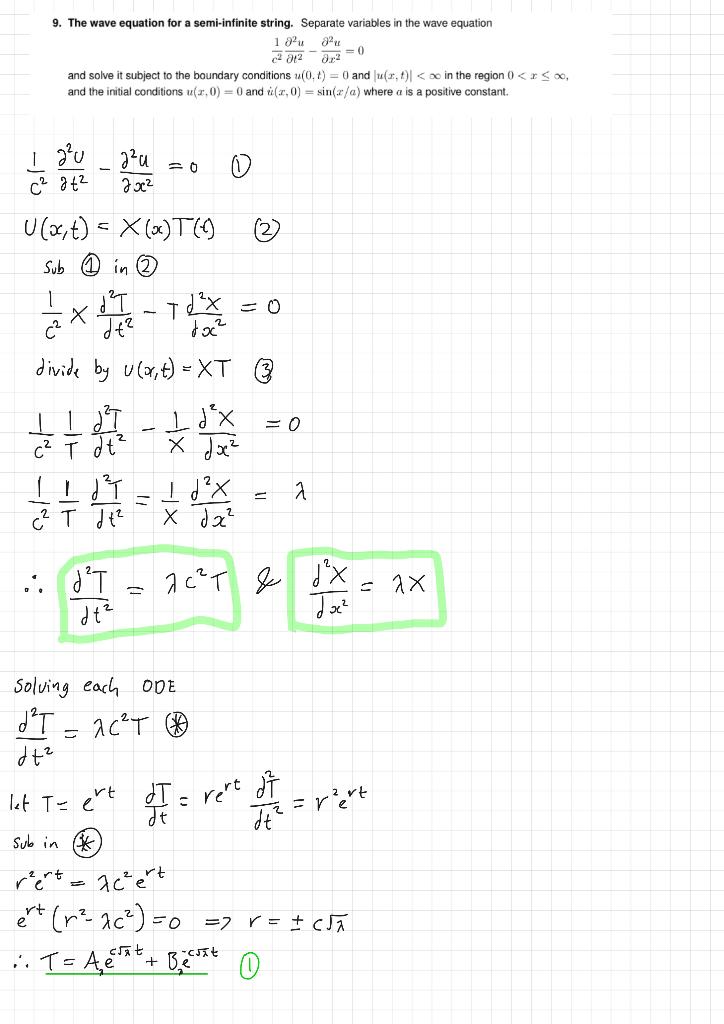 9. The wave equation for a semi-infinite string. Separate variables in the wave equation
1/c² ∂²u/∂t² − ∂²u/∂x² = 0
and solve it subject to the boundary conditions u(0, t) = 0 and |u(x, t)| < ∞ in the region 0 < x ≤ ∞,
and the initial conditions u(x, 0) = 0 and u̇(x, 0) = sin(x/a) where a is a positive constant.
1/c² ∂²U/∂t² − ∂²U/∂x² = 0 ①
U(x,t) = X(x)T(t) ②
Sub ① in ②
1/c² X d²T/dt² − T d²X/dx² = 0
divide by U(x,t) = XT ③
1/c² 1/T d²T/dt² − 1/X d²X/dx² = 0
1/c² 1/T d²T/dt² = 1/X d²X/dx² = λ
∴ d²T/dt² = λc²T & d²X/dx² = λX
Solving each ODE
d²T/dt² = λc²T ⊛
let T = e^rt dT/dt = re^rt d²T/dt² = r²e^rt
Sub in ⊛
r²e^rt = λc²e^rt
e^rt (r² − λc²) = 0 => r = ± c√λ
∴ T = A₂e^c√λt + B₂e^-c√λt ①